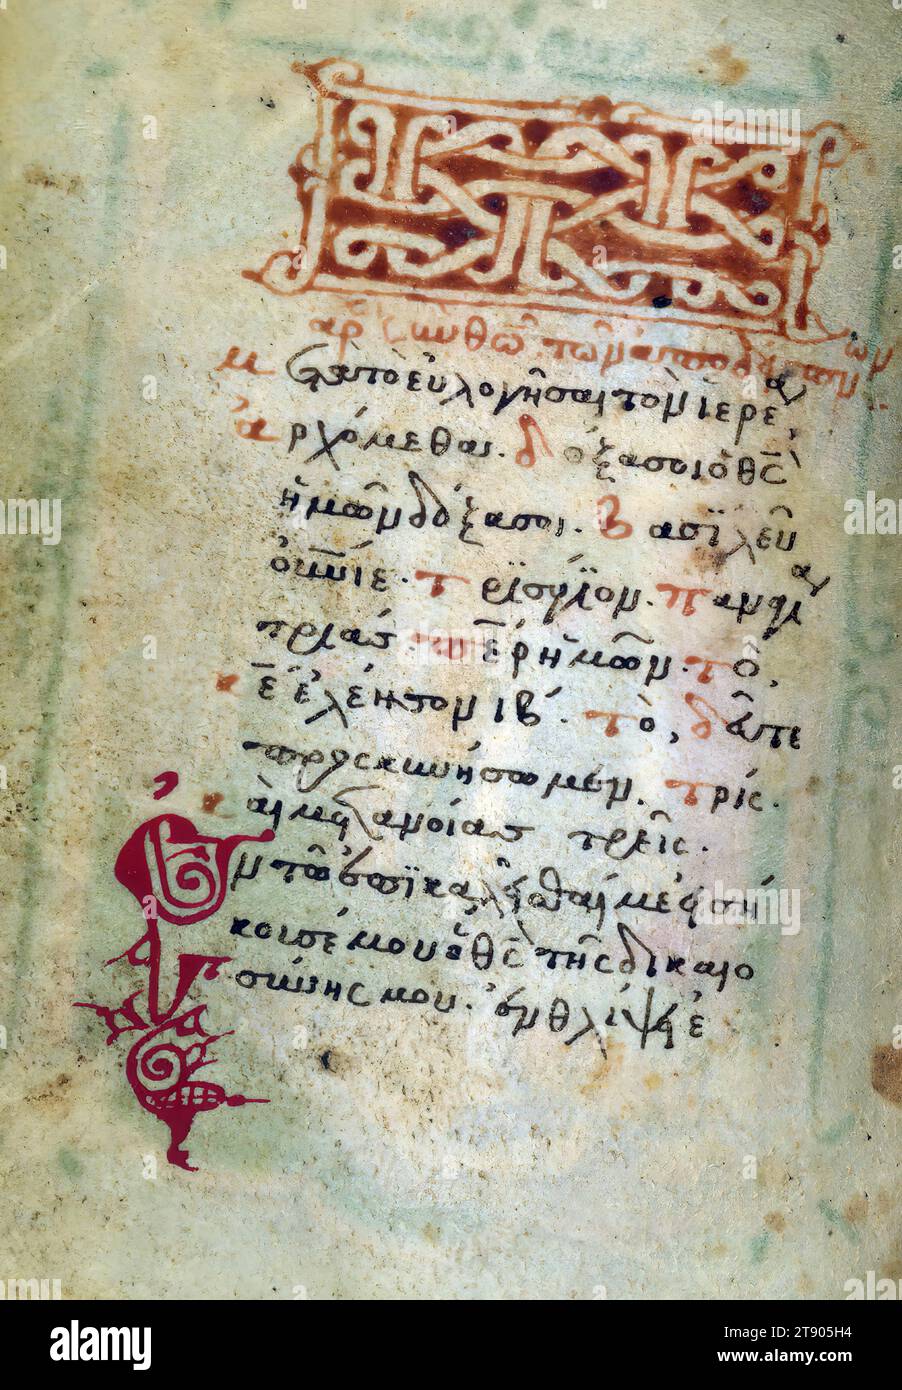 ἀρχ σὺν θῶ τῶν ἀποδείπνων
μετὰ τὸ εὐλογῆσαι τὸν ἱερέα,
ἀρχόμεθα. δόξα σοι ὁ θς
ἡμῶν δόξα σοι. βασϊλεῦ
οὐνιε. τρϊσάγϊον. παναγία
τριάς. περ ἡμῶν. τὸ,
κε ἐλέησον ιβ. τὸ, δεῦτε
προσκυνήσωμεν. τρίς.
καὶ μετανοίας τρεῖς.
Εν τῶ ἐπϊκαλεῖσθαί με εἰσή
κουσέ μου ὁ θς τῆς δικαιο
σύνης μου. ἐν θλίψει ἐ
alamy
Image ID: 2T905H4
www.alamy.com